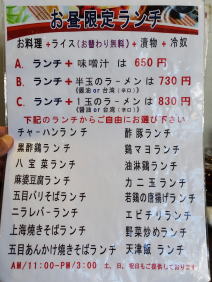 お昼限定ランチ
お料理+ライス(お替わり無料)+漬物+冷奴
A. ランチ+味噌汁 は 650 円
B. ランチ+半玉のラーメン は 730 円
(醤油 or 台湾(辛口))
C. ランチ+1玉のラーメン は 830 円
(醤油 or 台湾(辛口))
下記のランチからご自由にお選び下さい
チャーハンランチ 酢豚ランチ
黒酢鶏ランチ 鶏マヨランチ
八宝菜ランチ 油淋鶏ランチ
麻婆豆腐ランチ カニ玉ランチ
五目バリそばランチ 若鶏の唐揚げランチ
ニラレバーランチ エビチリランチ
上海焼きそばランチ 野菜炒めランチ
五目あんかけ焼きそばランチ 天津飯 ランチ
AM/11:00~PM/3:00 土、日、祝日もご提供しております